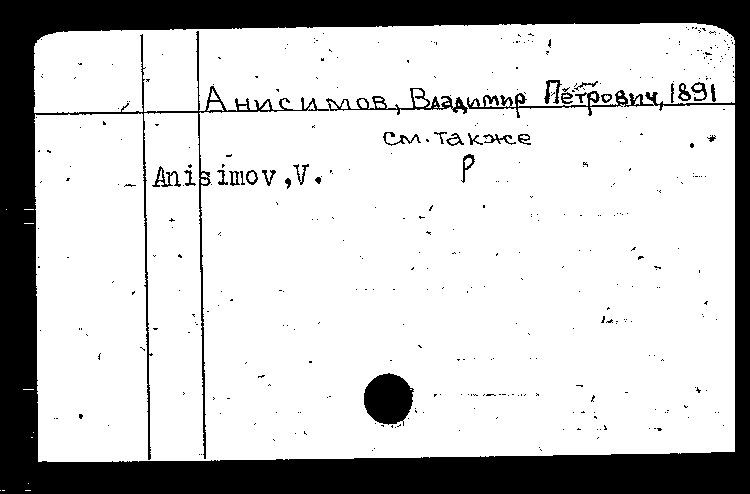 Анисимов, Владимир Петрович, 1891
см. также
р
Anisimov, V.